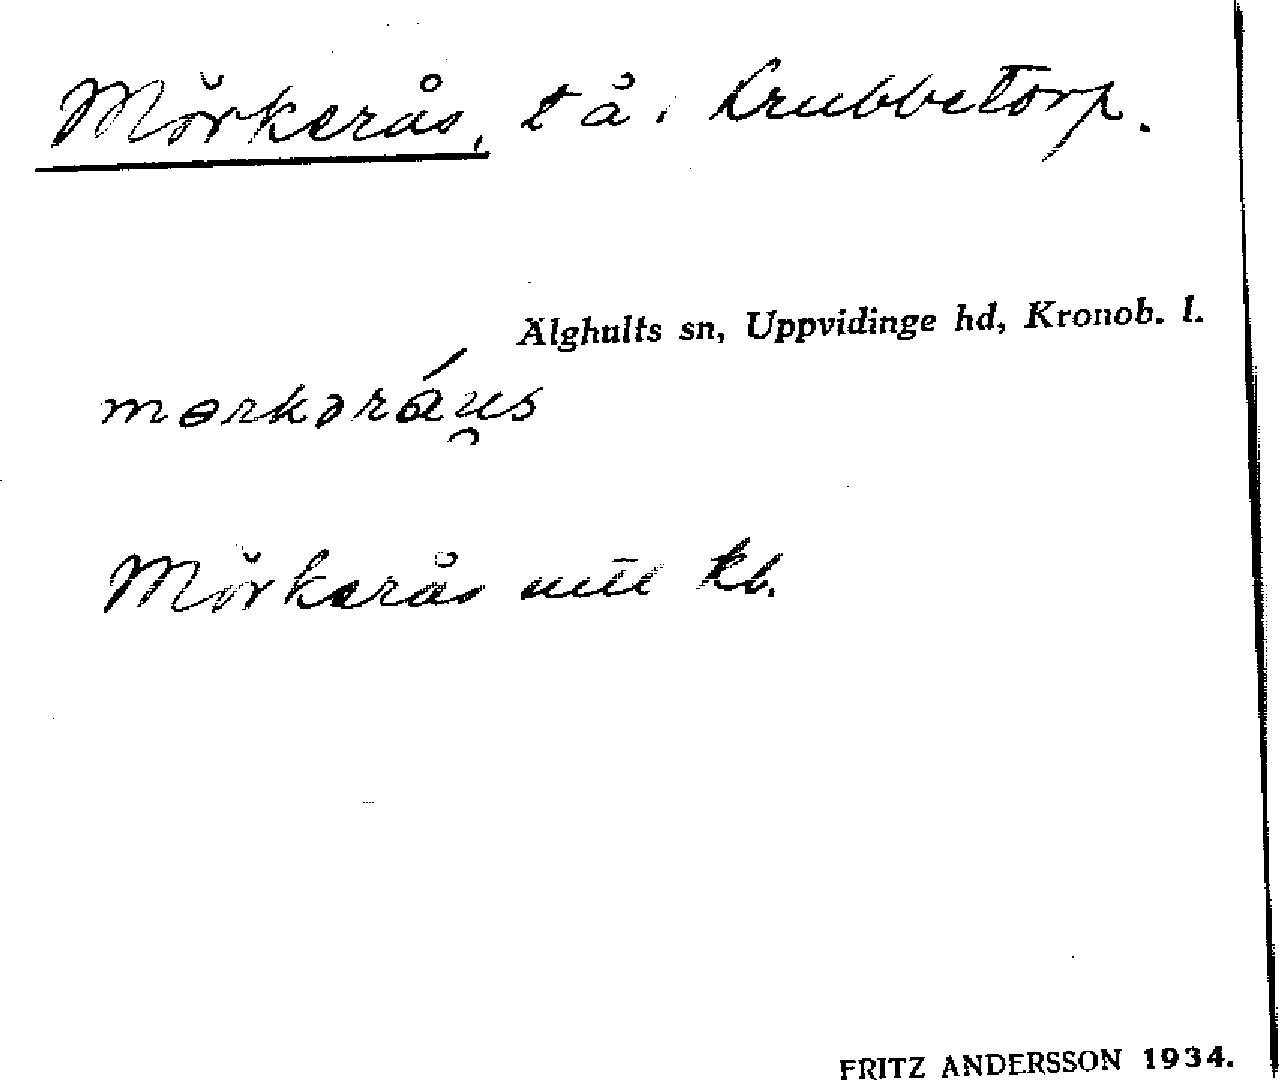 Mörkerås, t å. Krubbetorp.
Älghults sn, Uppvidinge hd, Kronob. l.
mɵrkəráu̯s
Mörkerås kb.
FRITZ ANDERSSON 1934.